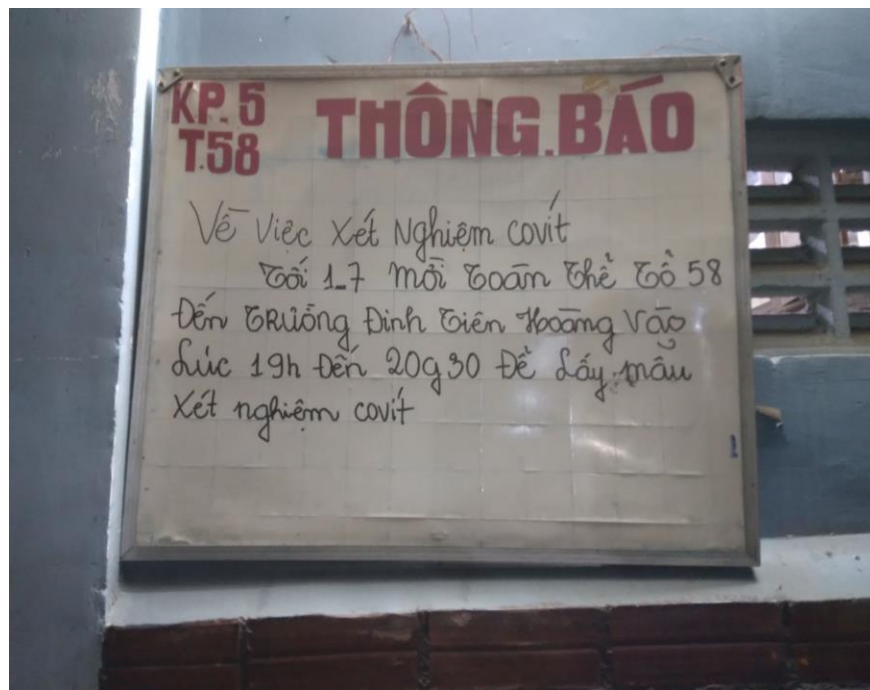 KP. 5
T.58
THÔNG.BÁO
Về Việc Xét Nghiệm covít
Tối 1_7 mời Toàn Thể Tổ 58
Đến TRường Đinh Tiên Hoàng Vào
Lúc 19h Đến 20g30 Để Lấy mẫu
Xét nghiệm covít